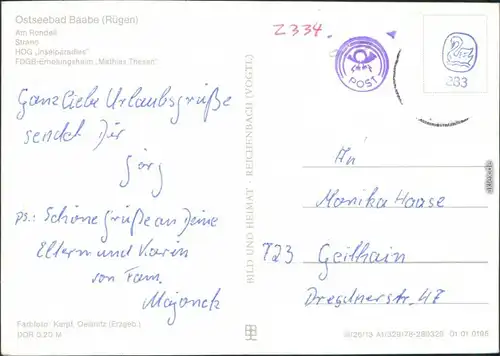 Ostseebad Baabe (Rügen)
Am Rondell
Strand
HOG „Inselparadies"
FDGB-Erholungsheim „Mathias Thesen"
2334.
POST
283
Ganz liebe Urlaubsgrüße
sendet Dir
Jörg
ps.: Schöne Grüße an Deine
Eltern und Karin
von Fam.
Majonek
BILD UND HEIMAT · REICHENBACH (VOGTL)
An
Monika Haase
723 Geithain
Dresdnerstr. 47
Farbfoto: Kempf, Oelsnitz (Erzgeb.)
DDR 0,20 M
A1/329/78-280329 01 01 0195